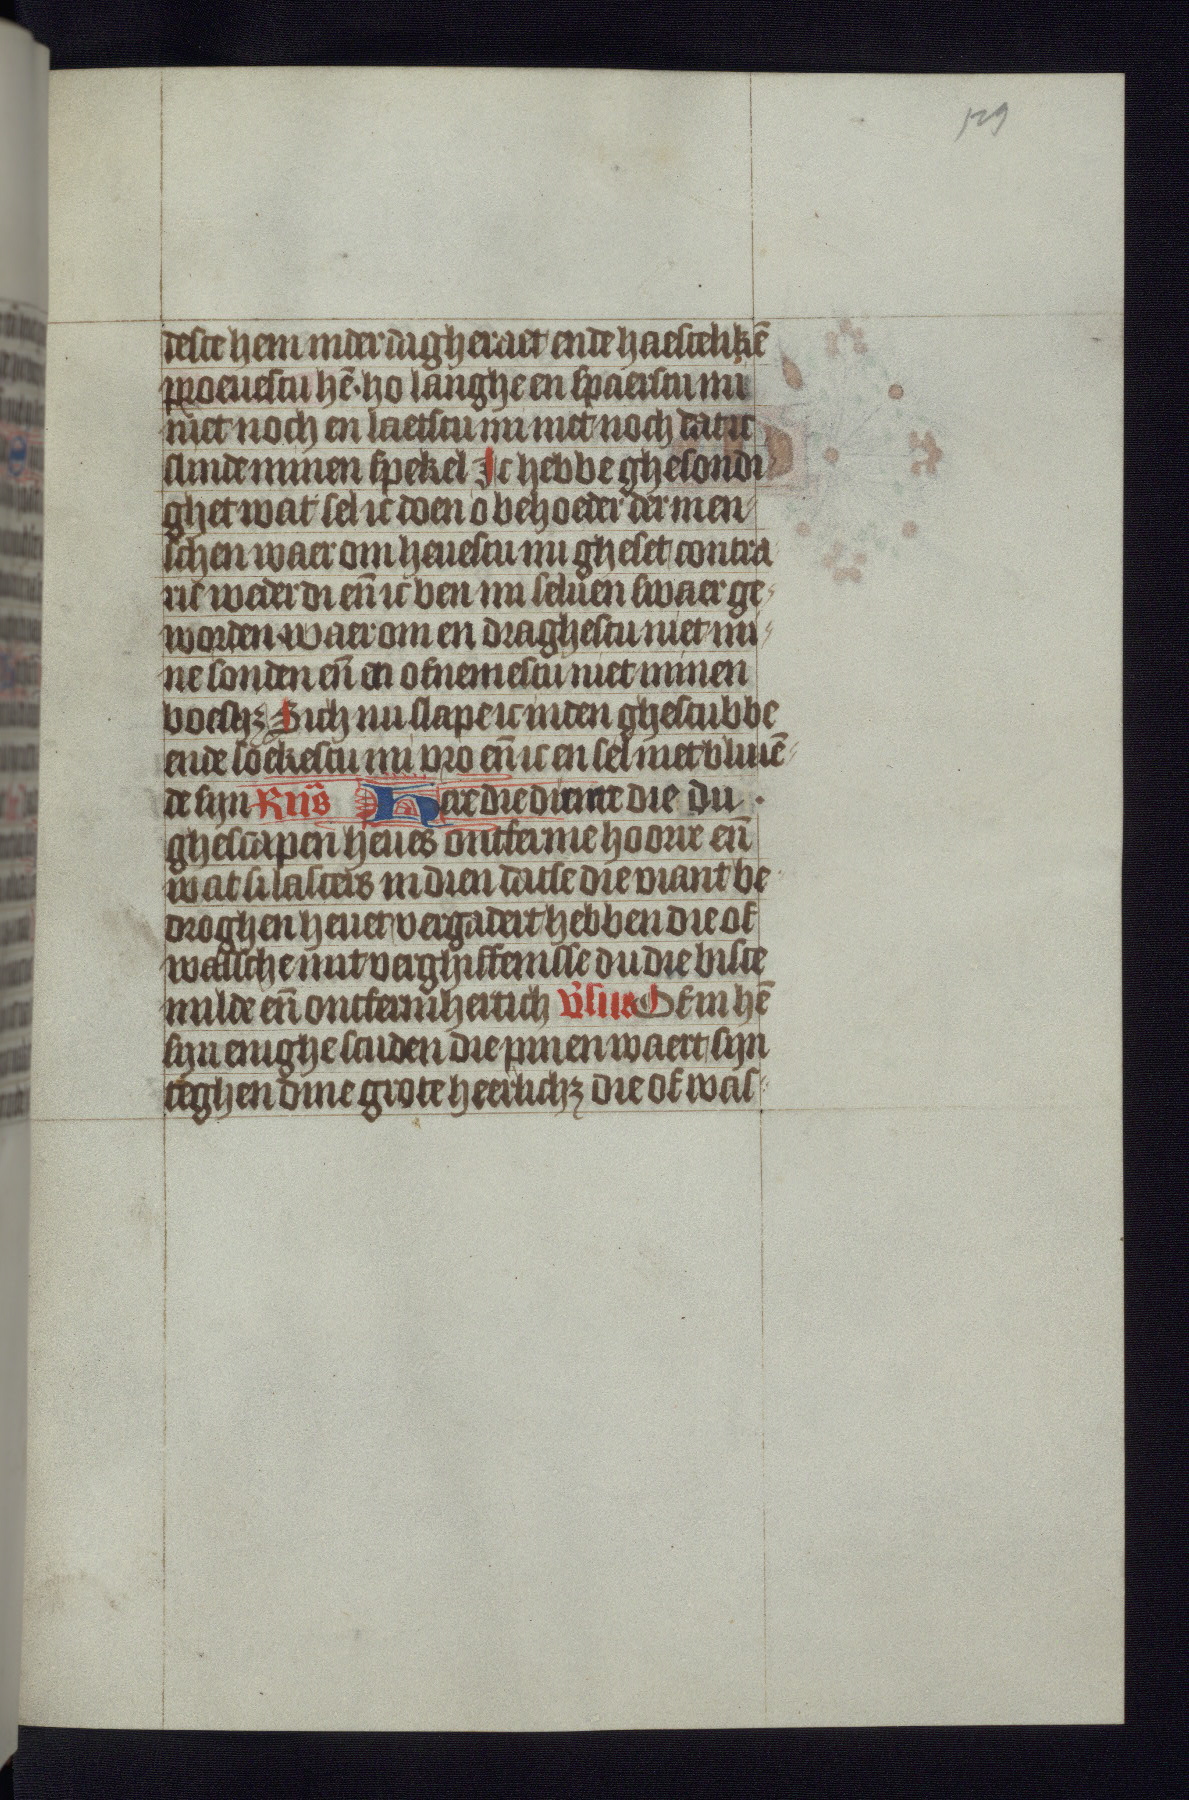 129
teste hem inder dagheraet ende haestelikē
proeuestu hē. ho langhe en spaerstu mi
niet noch en laetstu mi niet noch dat ic
slinde minen spekel Ic hebbe ghesondi
ghet wat sel ic doen o behoeder der men
schen waer om heuestu mi gheset contra
rie weder di eñ ic ben mi seluen swaer ge
worden. waer om en draghestu niet mi
ne sonden eñ en ofnemestu niet minen
boeshꝫ Sich nu slape ic inden ghestubbe
ende soekestu mi vro eñ ic en sel niet bliuē
de syn Rn̄s Here die dinne die du
ghescapen heues ontfermie hoorre eñ
wat si lasters in dien datse die viant be
droghen heuet vergadert hebben die of
wassche mit verghiffenisse du die biste
milde eñ ontfermhertich v̄sus Of in hē
syn enighe scuden die pinen waert syn
teghen dine grote heerlichꝫ die of was